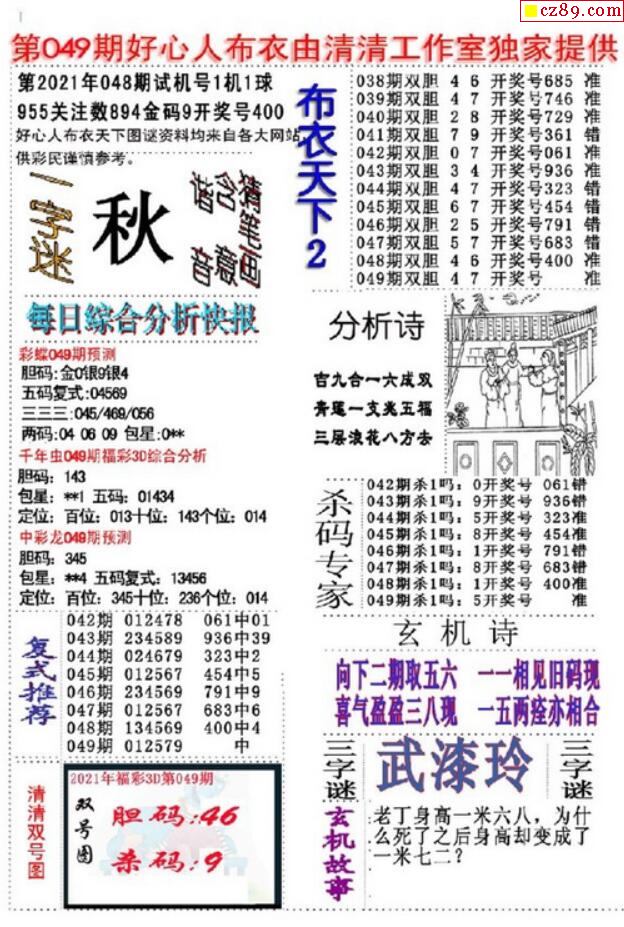 cz89.com
第049期好心人布衣由清清工作室独家提供
第2021年048期试机号1机1球
955关注数894金码9开奖号400
好心人布衣天下图谜资料均来自各大网站,
供彩民谨慎参考。
一字迷
秋
猜笔画
含意
谐音
布衣天下2
038期双胆 4 6 开奖号685 准
039期双胆 4 7 开奖号746 准
040期双胆 2 8 开奖号729 准
041期双胆 7 9 开奖号361 错
042期双胆 0 7 开奖号061 准
043期双胆 3 4 开奖号936 准
044期双胆 4 7 开奖号323 错
045期双胆 6 7 开奖号454 错
046期双胆 2 5 开奖号791 错
047期双胆 5 7 开奖号683 错
048期双胆 4 6 开奖号400 准
049期双胆 4 7 开奖号 准
每日综合分析快报
彩蝶049期预测
胆码:金0银9银4
五码复式:04569
三三三:045/469/056
两码:04 06 09 包星:0**
千年虫049期福彩3D综合分析
胆码: 143
包星: **1 五码: 01434
定位: 百位: 013十位: 143个位: 014
中彩龙049期预测
胆码: 345
包星: **4 五码复式: 13456
定位: 百位: 345十位: 236个位: 014
分析诗
吉九合一六成双
青莲一支兆五福
三层浪花八方去
杀码专家
042期杀1吗: 0开奖号 061错
043期杀1吗: 9开奖号 936错
044期杀1吗: 5开奖号 323准
045期杀1吗: 8开奖号 454准
046期杀1吗: 1开奖号 791错
047期杀1吗: 8开奖号 683错
048期杀1吗: 1开奖号 400准
049期杀1吗: 5开奖号 准
复式推荐
042期 012478 061中01
043期 234589 936中39
044期 024679 323中2
045期 012567 454中5
046期 234569 791中9
047期 012567 683中6
048期 134569 400中4
049期 012579 中
玄机诗
向下二期取五六 一一相见旧码现
喜气盈盈三八现 一五两痊亦相合
清清双号图
2021年福彩3D第049期
双号图
胆码:46
杀码:9
三字谜
武漆玲
三字谜
玄机故事
老丁身高一米六八，为什
么死了之后身高却变成了
一米七二？